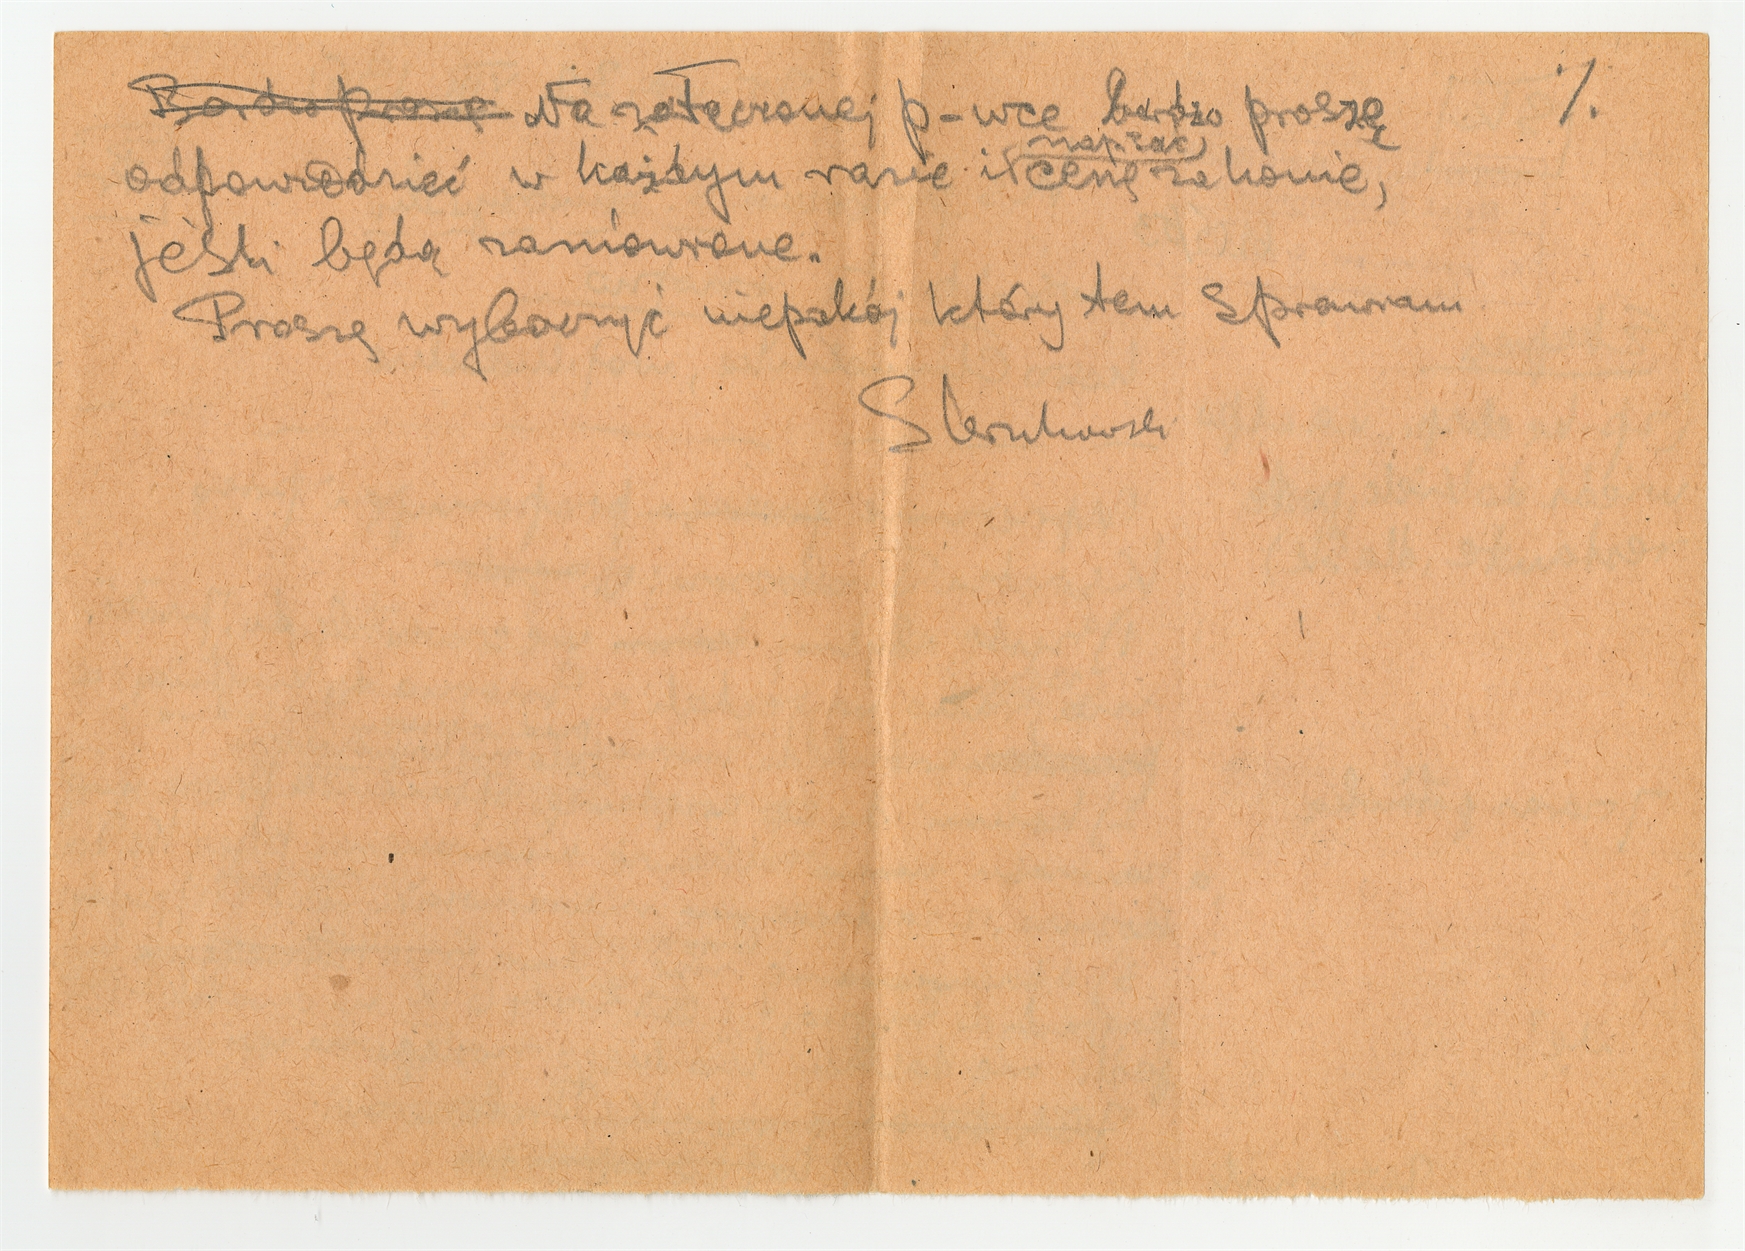 Bardzo proszę Na załączonej p-wce bardzo proszę ./.
odpowiedzieć w każdym razie i napisać cenę za konie,
jeśli będą zamówione.
Proszę wybaczyć niepokój który tem sprawiam